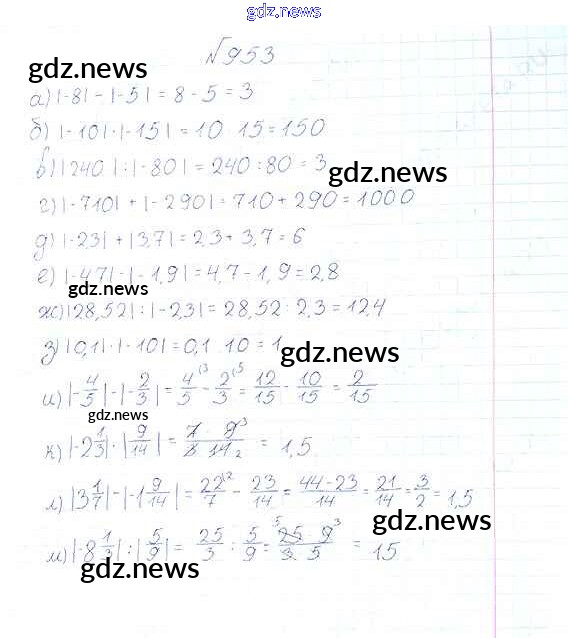 gdz.news
№953
gdz.news
а) |-8| - |-5| = 8 - 5 = 3
б) |-10| · |-15| = 10 · 15 = 150
в) |240| : |-80| = 240 : 80 = 3
gdz.news
г) |-710| + |-290| = 710 + 290 = 1000
д) |-2,3| + |3,7| = 2,3 + 3,7 = 6
е) |-4,7| - |-1,9| = 4,7 - 1,9 = 2,8
gdz.news
ж) |28,52| : |-2,3| = 28,52 : 2,3 = 12,4
з) |0,1| · |-10| = 0,1 · 10 = 1
gdz.news
и) |-4/5| - |-2/3| = 4/5 - 2/3 = 12/15 - 10/15 = 2/15
gdz.news
к) |-2 1/3| · |9/14| = 7 · 9/3 · 14 = 1,5
л) |3 1/7| - |-1 9/14| = 22/7 - 23/14 = 44-23/14 = 21/14 = 3/2 = 1,5
gdz.news
м) |-8 1/3| : |5/9| = 25/3 : 5/9 = 25 · 9/3 · 5 = 15
gdz.news